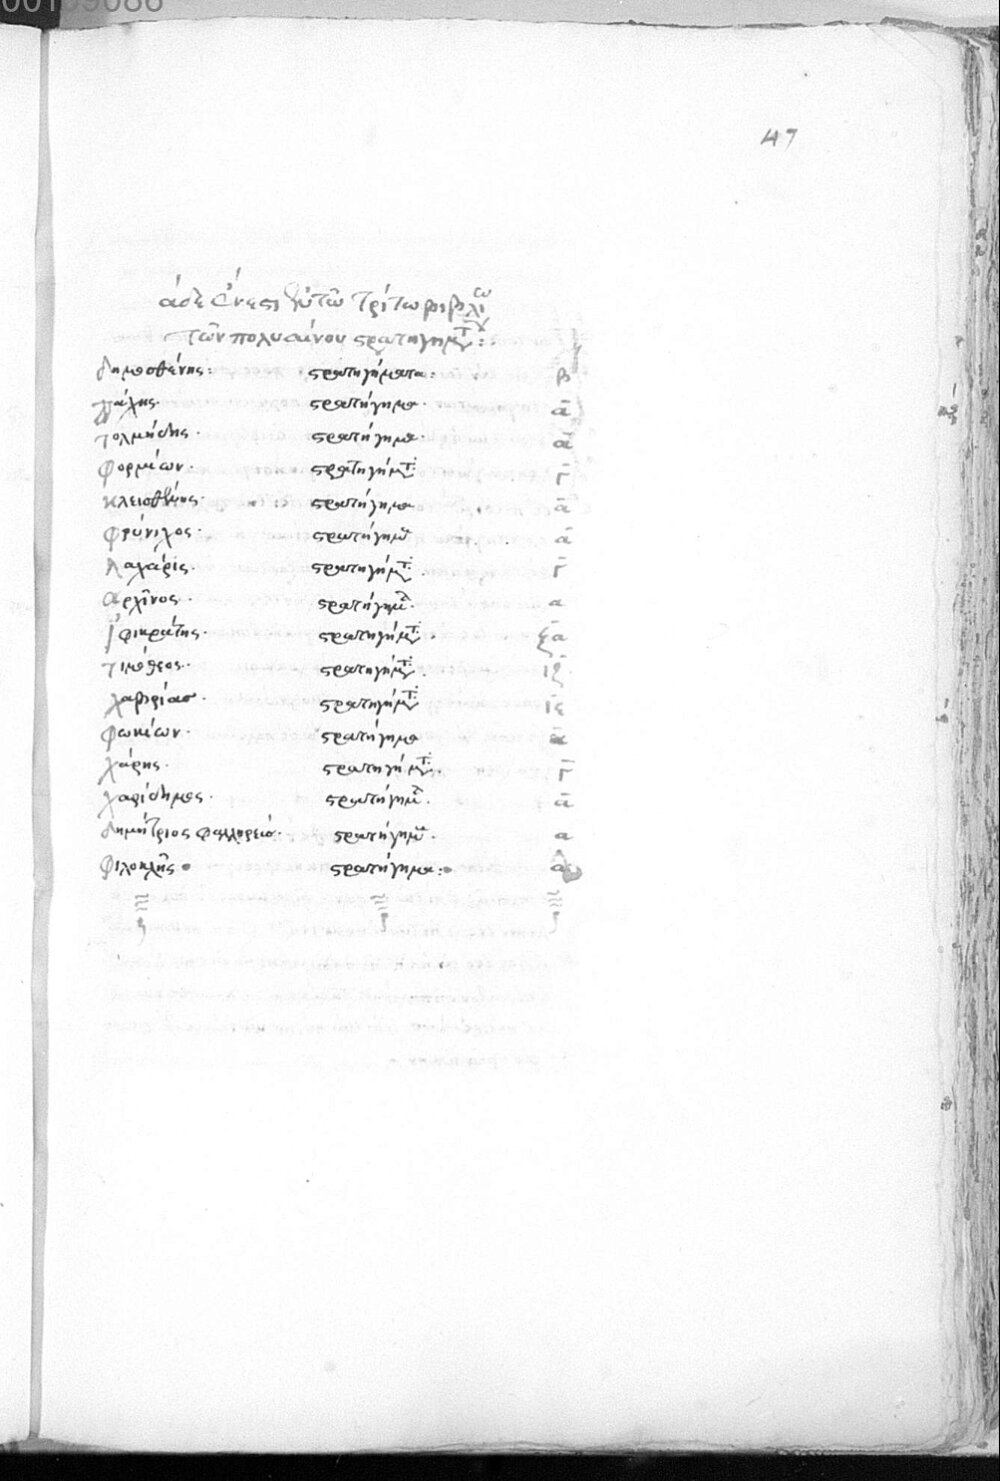 00139086
47
τάδε ἔνεστι ἐν τῶ τρίτω βιβλίω
τῶν πολυαίνου στρατηγημτ:
δημοσθένης: στρατηγήματα: β
πάχης· στρατήγημα· α
τολμίδης· στρατήγημα· α
φορμίων· στρατηγήμτ: γ
κλεισθένης· στρατήγημα α
φρύνιχος· στρατήγημα α
λαχάρις· στρατηγήμτ: γ
αρχῖνος· στρατήγημα· α
ἰφικράτης· στρατηγήμτ: ξα
τιμόθεος· στρατηγήμτ: ιζ
χαβρίας· στρατηγήμτ: ιε
φωκίων· στρατήγημα α
χάρης· στρατηγήμτ: γ
χαρίδημος· στρατήγημα· α
δημήτριος φαληρεύς· στρατήγημα· α
φιλοκλῆς· στρατήγημα: α